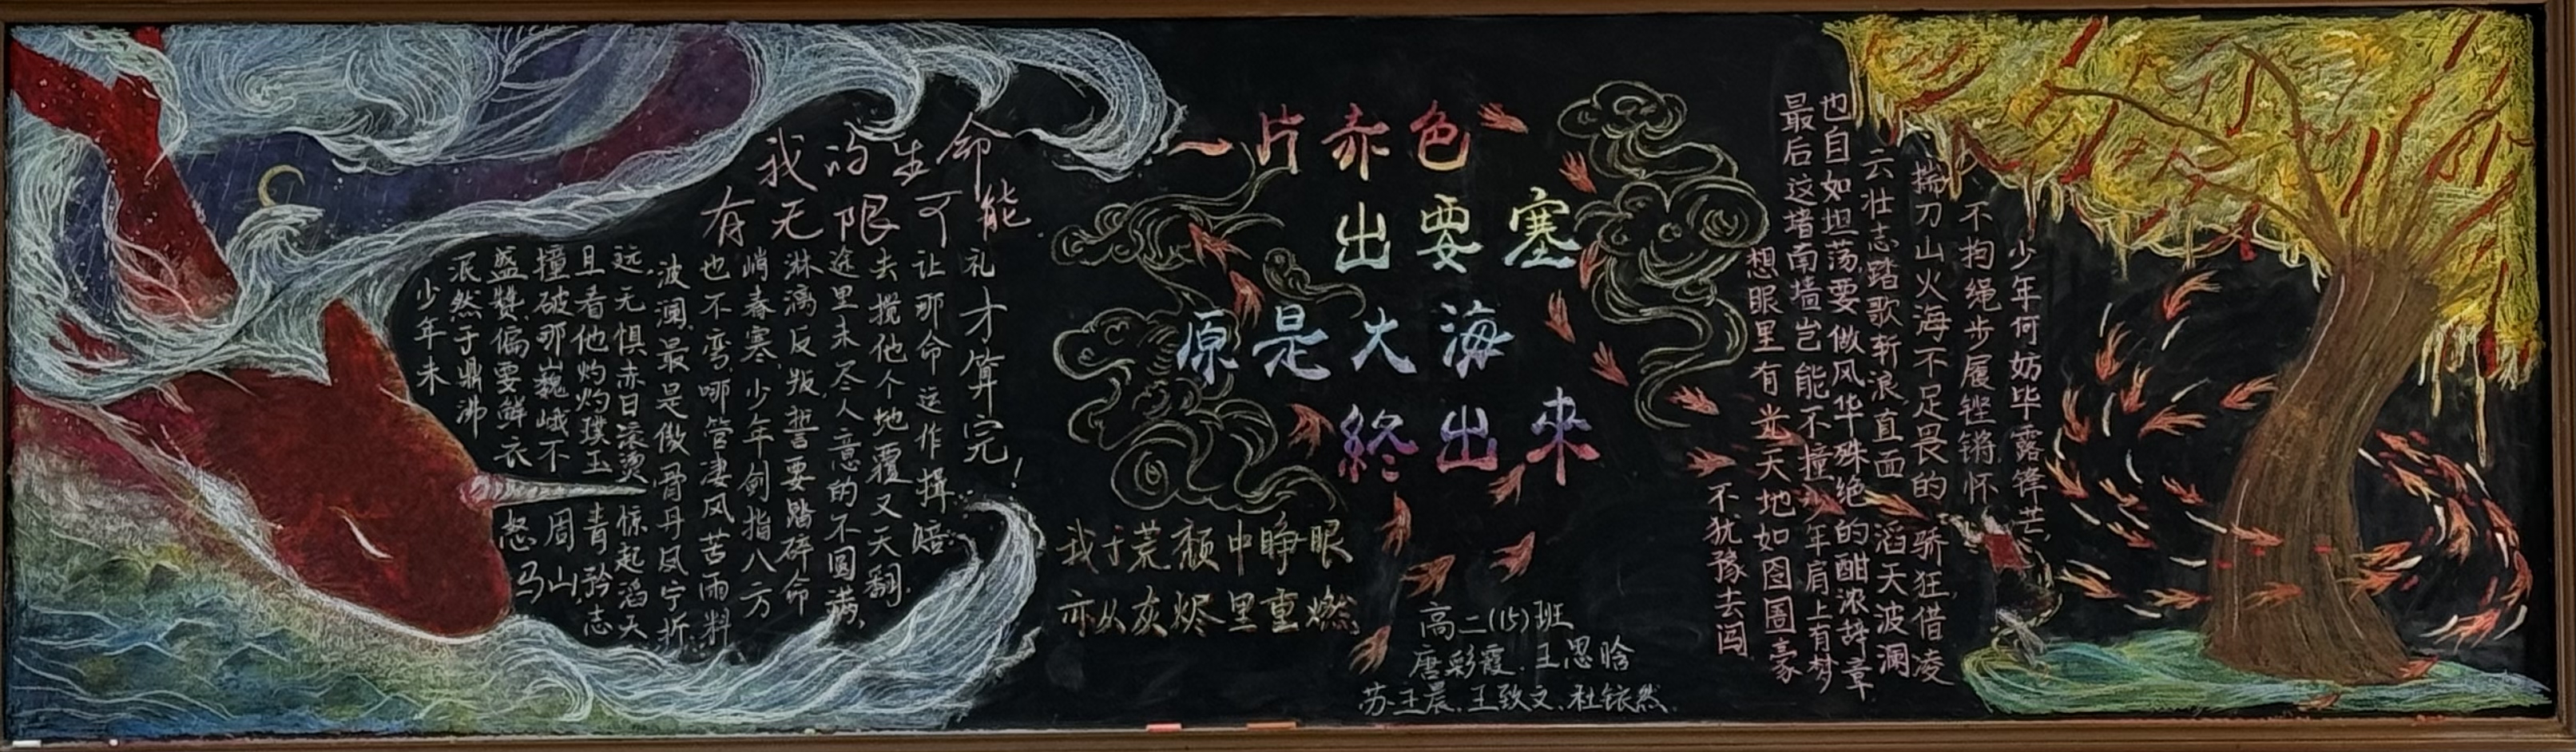 我的生命
有无限可能.
少年未
泯然于鼎沸
盛赞,偏要鲜衣怒马
撞破那巍峨不周山,
且看他灼灼璞玉青矜志
远,无惧赤日滚烫,惊起滔天
波澜,最是傲骨丹凤宁折
也不弯,哪管凄风苦雨料
峭春寒,少年剑指八方
淋漓反叛,誓要踏碎命
途里未尽人意的不圆满,
去搅他个地覆又天翻.
让那命运作揖赔
礼才算完!
一片赤色
出要塞
原是大海
終出來
我于荒颓中睁眼
亦从灰烬里重燃
高二(15)班
唐彩霞.王思晗
苏王晨.王致文.杜依然.
少年何妨毕露锋芒,
不拘绳步履铿锵怀
揣刀山火海不足畏的骄狂借凌
云壮志踏歌斩浪直面滔天波澜
也自如坦荡,要做风华殊绝的酣浓辞章
最后这堵南墙岂能不撞少年肩上有梦
想眼里有光天地如囹圄豪
不犹豫去闯